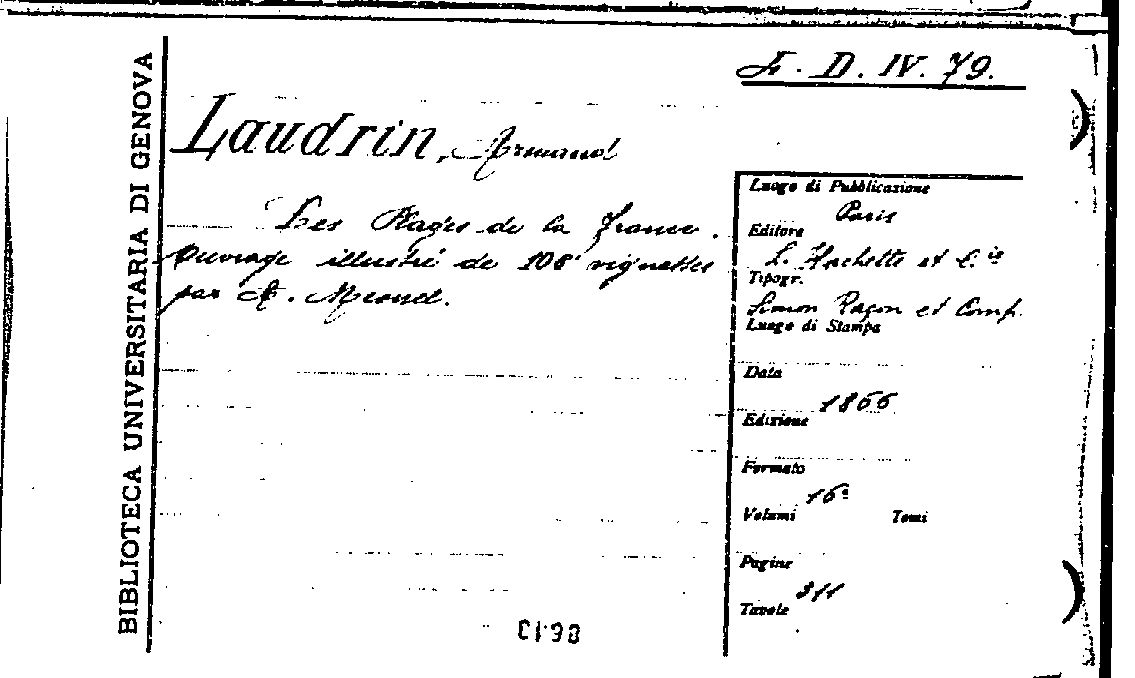 BIBLIOTECA UNIVERSITARIA DI GENOVA
F. D. IV. 79.
Laudrin, Armand
Les Plages de la France.
Ouvrage illustré de 106 vignettes
par A. Mesnel.
Luogo di Pubblicazione
Paris
Editore
L. Hachette et C.ie
Tipogr.
Simon Raçon et Comp.
Luogo di Stampa
Data
1866
Edizione
Formato
16º
Volumi Tomi
Pagine
311
Tavole